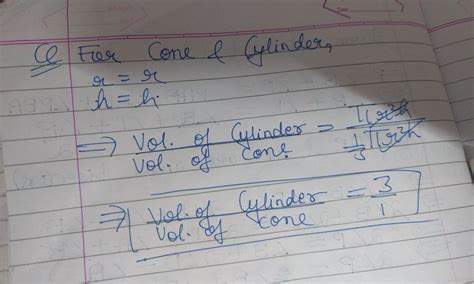 Q For Cone & Cylinder,
r = r
h = h
⇒ Vol. of Cylinder / Vol. of Cone = πr²h / 1/3 πr²h
⇒ Vol. of Cylinder / Vol. of Cone = 3/1